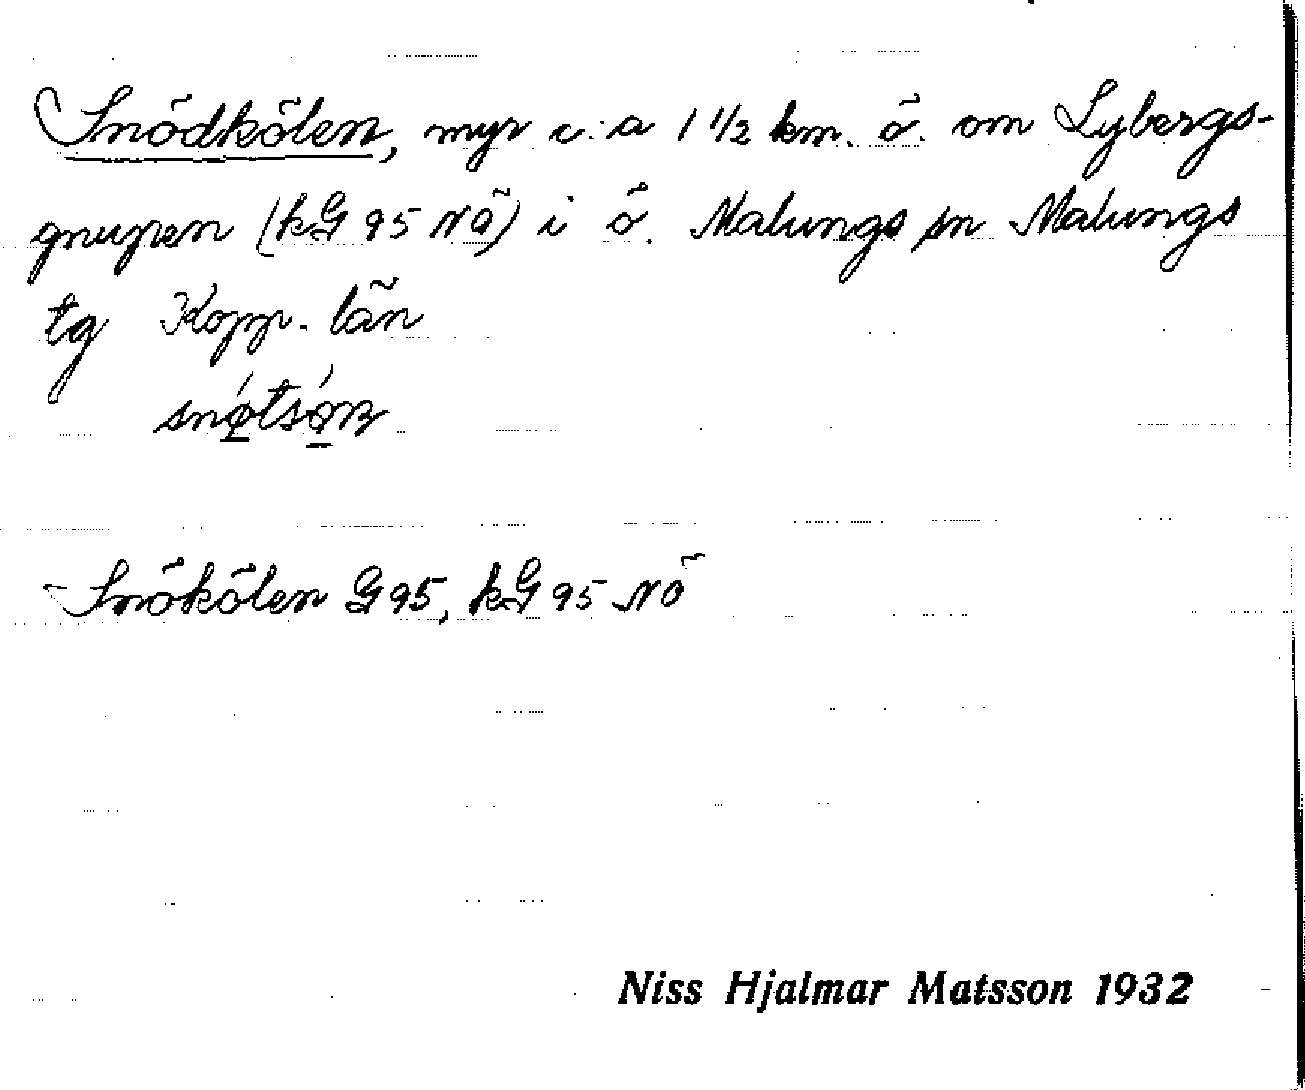 Snödkölen, myr c:a 1 1/2 km. ö. om Lybergs-
gnupen (kG 95 NÖ) i ö. Malungs sn Malungs
tg Kopp. län
Snökölen G 95, kG 95 NÖ
Niss Hjalmar Matsson 1932